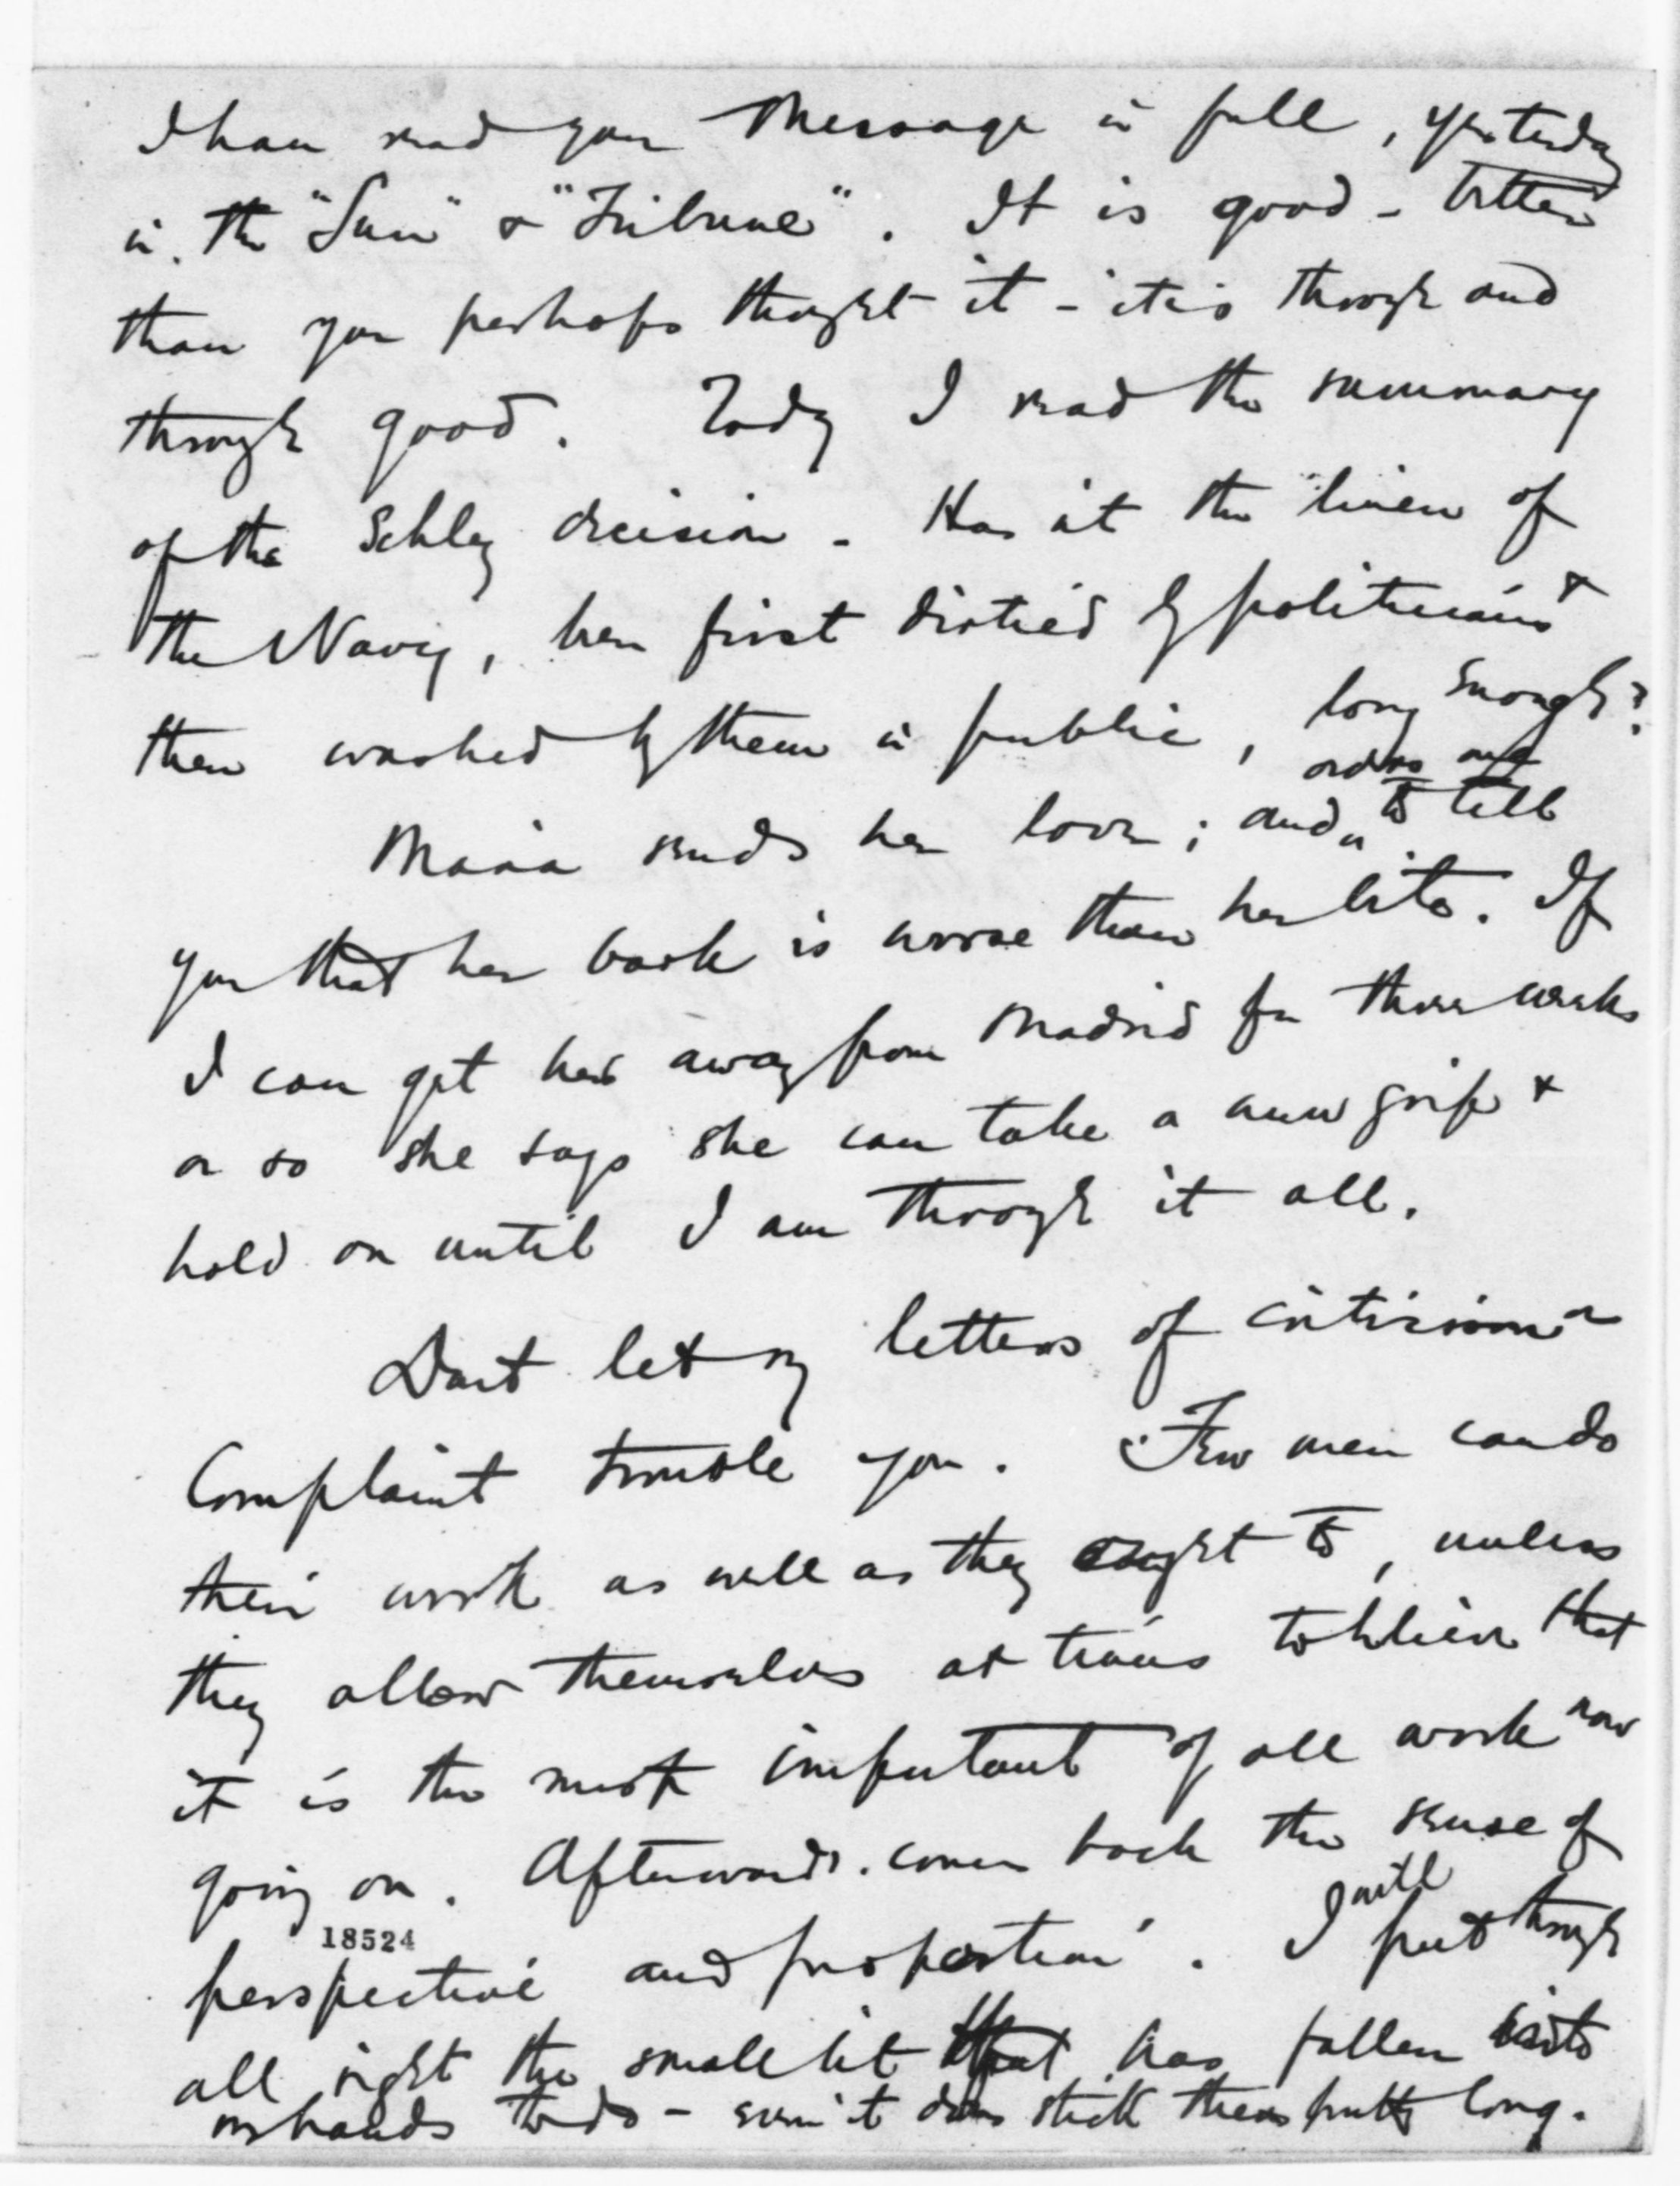 I have read your Message in full, yesterday
in the "Sun" & "Tribune". It is good - better
than you perhaps thought it - it is through and
through good. Today I read the summary
of the Schley decision - Has it the linen of
the Navy, been first dirtied by politicians &
then washed by them in public, long enough?
orders me
Maia sends her love; and to tell
you that her bark is worse than her bite. If
I can get her away from Madrid for three weeks
or so she says she can take a new grip &
hold on until I am through it all.
Don't let my letters of criticism or
Complaint trouble you. Few men can do
their work as well as they ought to, unless
they allow themselves at times to believe that
it is the most important of all work now
going on. Afterwards comes back the sense of
18524
perspective and proportion. I will put through
all right the small bit that has fallen into
my hands to do - even it does stick there pretty long.